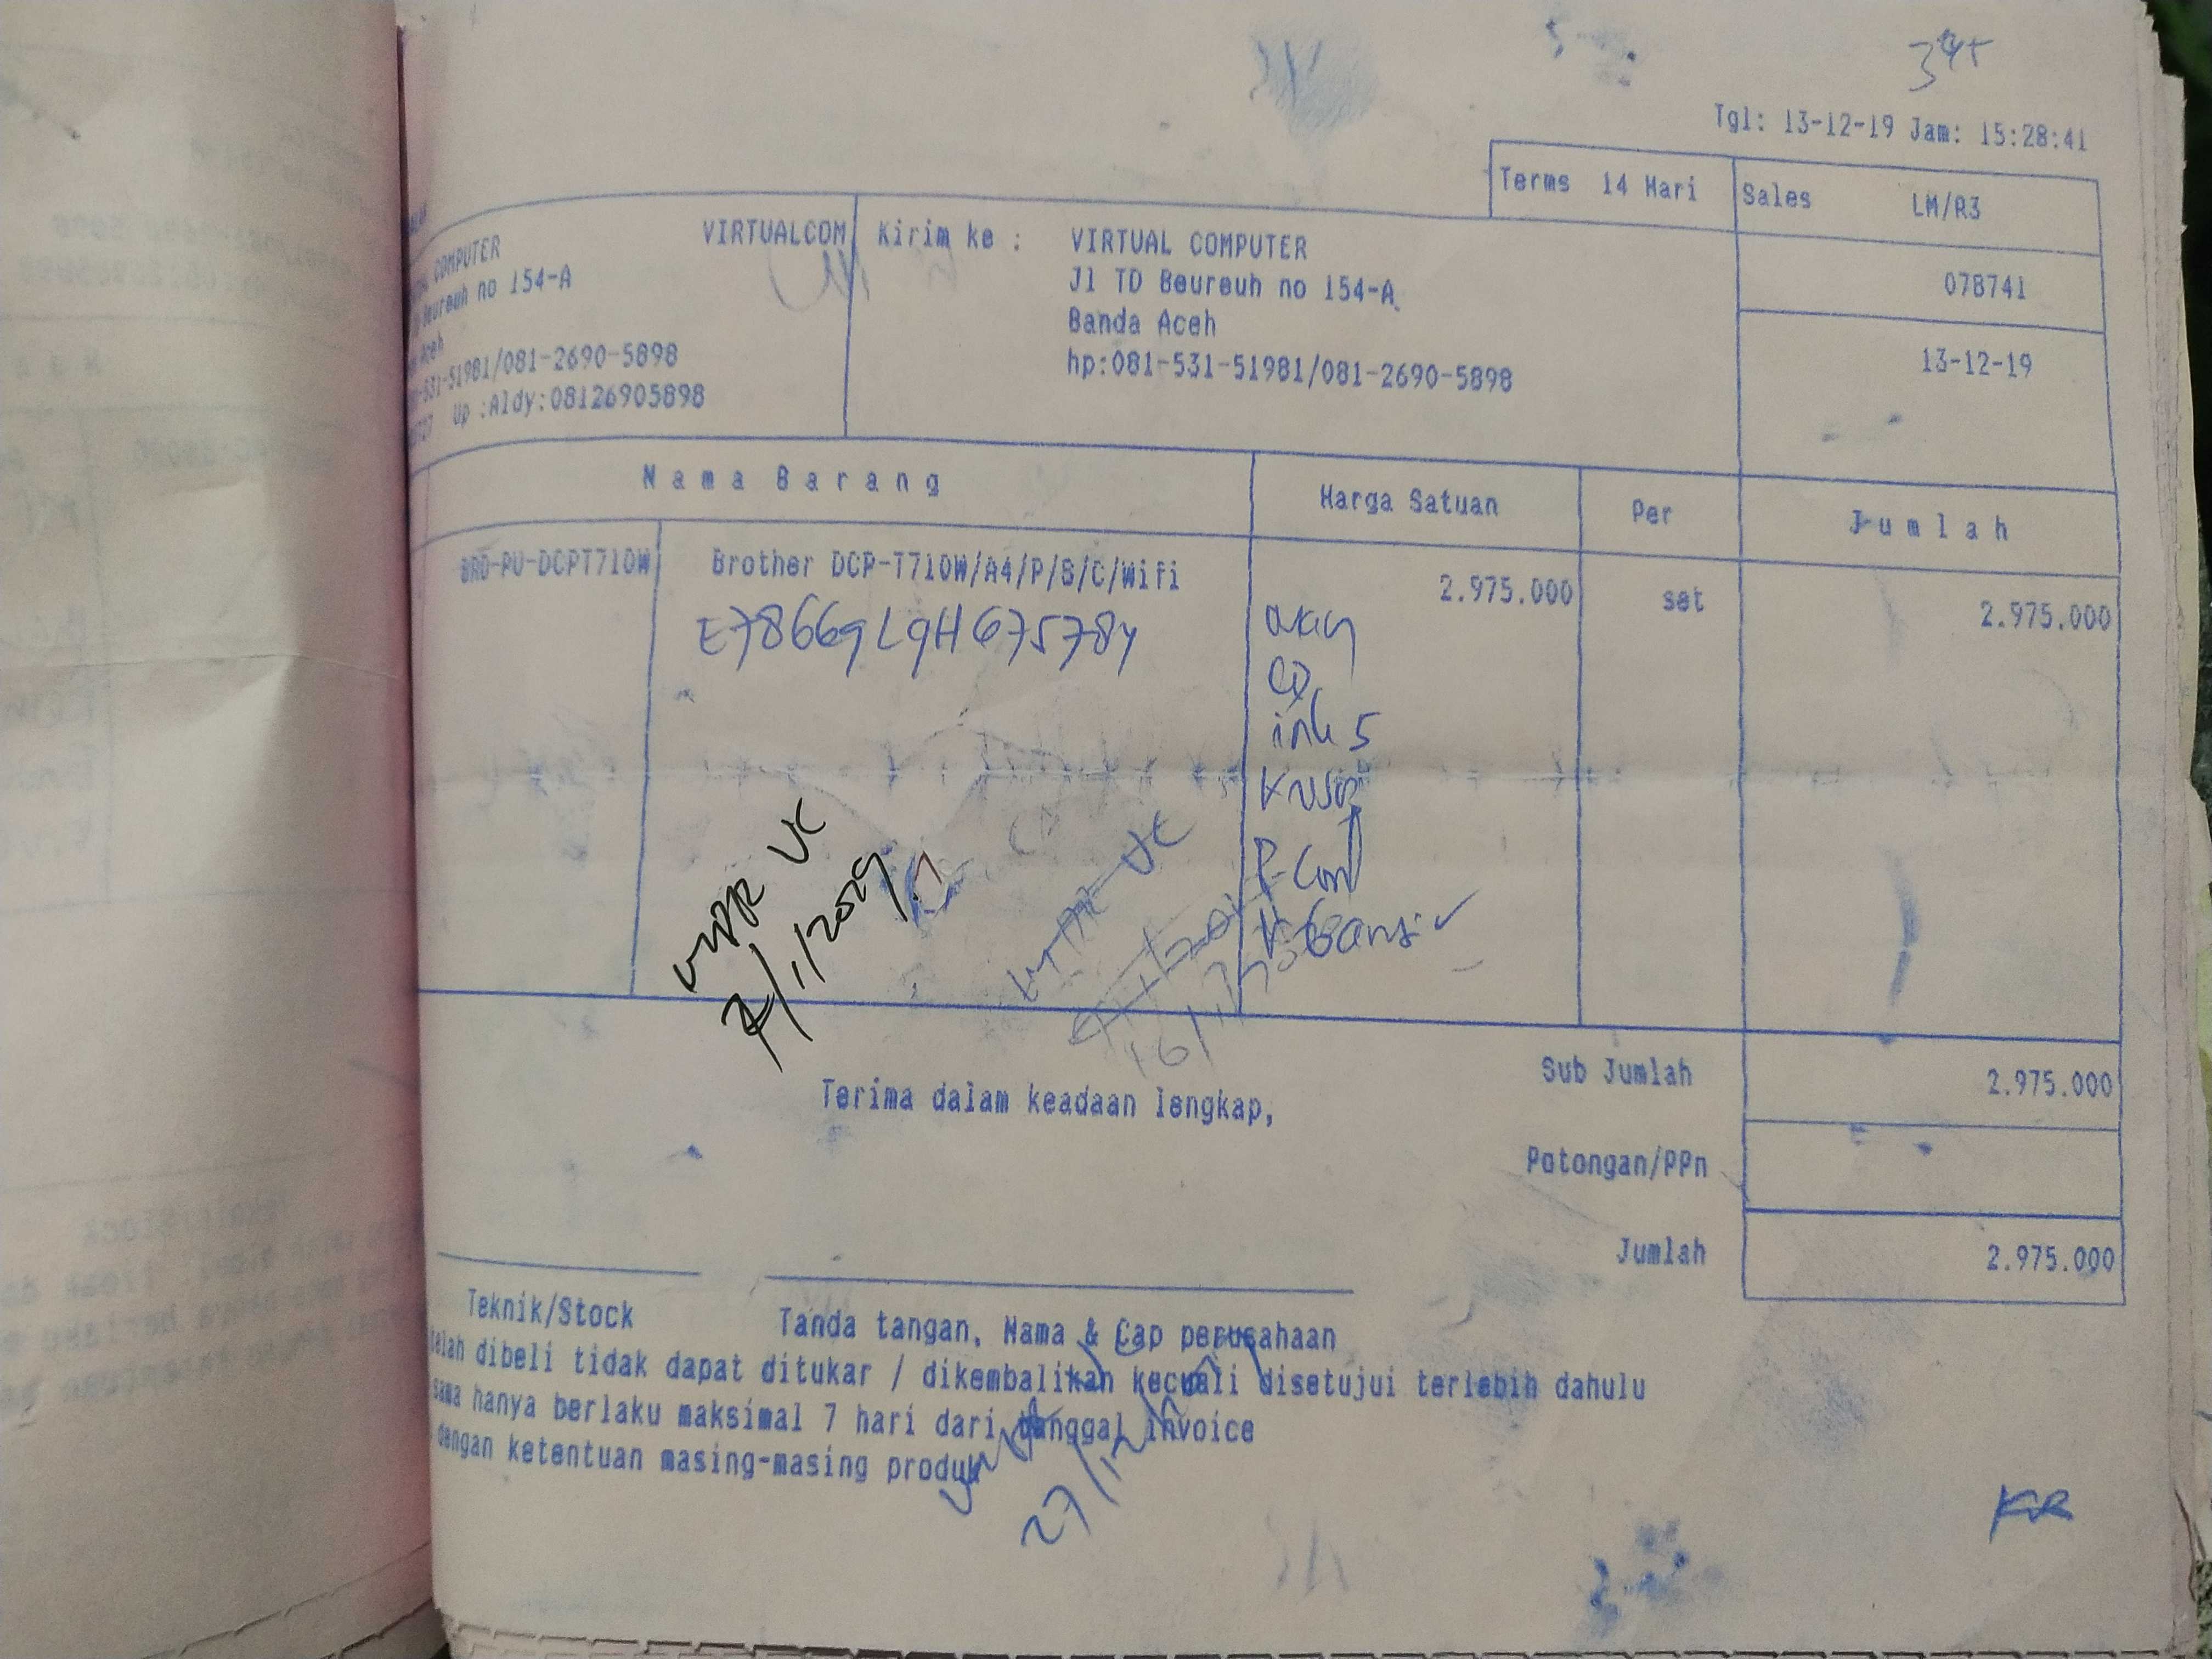 Tgl: 13-12-19 Jam: 15:28:41
Terms 14 Hari Sales LM/R3
COMPUTER VIRTUALCOM
Beureuh no 154-A
Aceh
-531-51981/081-2690-5898
Up :Aldy:08126905898
Kirim ke : VIRTUAL COMPUTER
Jl TD Beureuh no 154-A
Banda Aceh
hp:081-531-51981/081-2690-5898
078741
13-12-19
Nama Barang Harga Satuan Per Jumlah
BRO-PU-DCPT710W Brother DCP-T710W/A4/P/S/C/Wifi 2.975.000 set 2.975.000
E78669L9H675784
CD
ink 5
K USB
P Cord
K Garansi
Sub Jumlah 2.975.000
Terima dalam keadaan lengkap,
Potongan/PPn
Jumlah 2.975.000
Teknik/Stock Tanda tangan, Nama & Cap perusahaan
telah dibeli tidak dapat ditukar / dikembalikan kecuali disetujui terlebih dahulu
sama hanya berlaku maksimal 7 hari dari tanggal invoice
dengan ketentuan masing-masing produk